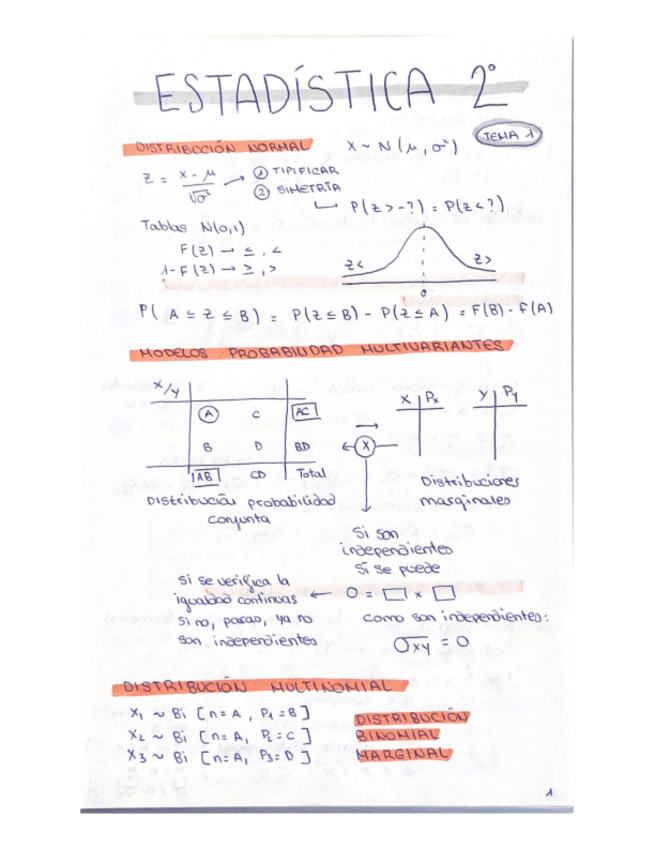 ESTADÍSTICA 2º
TEMA 1
DISTRIBUCIÓN NORMAL X ~ N(μ, σ²)
Z = (X - μ) / √σ² → ① TIPIFICAR
② SIMETRÍA
↳ P(Z > -?) = P(Z < ?)
Tablas N(0,1)
F(Z) → ≤, <
1-F(Z) → ≥, >
Z< Z>
0
P( A ≤ Z ≤ B) = P(Z ≤ B) - P(Z ≤ A) = F(B) - F(A)
MODELOS PROBABILIDAD MULTIVARIANTES
X/Y
A C AC
B D BD
AB CD Total
X
X Px
Y Py
Distribución probabilidad
conjunta
Distribuciones
marginales
Si son
independientes
Sí se puede
Si se verifica la
igualdad continuas ← O = □ x □
Si no, paras, ya no
son independientes
como son independientes:
σxy = 0
DISTRIBUCIÓN MULTINOMIAL
X₁ ~ Bi [n=A, P₁=B]
X₂ ~ Bi [n=A, P₂=C]
X₃ ~ Bi [n=A, P₃=D]
DISTRIBUCIÓN
BINOMIAL
MARGINAL
1